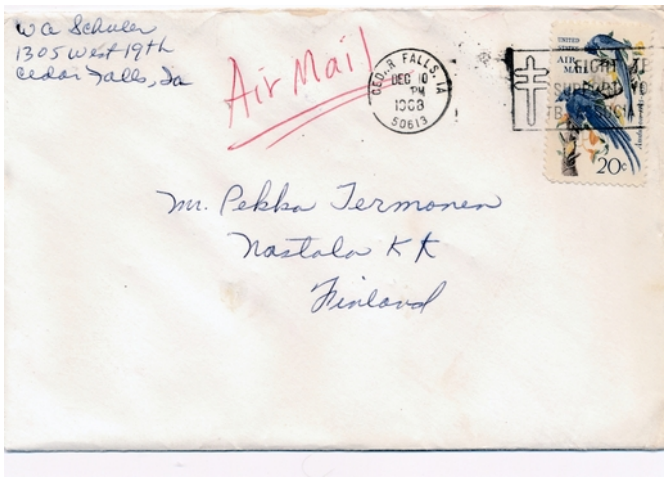 W A Schuler
1305 West 19th
Cedar Falls, Ia
Air Mail
CEDAR FALLS, IA
DEC 10
PM
1968
50613
UNITED
STATES
AIR
MAIL
FIGHT
SUPPORT YO
20¢
Mr. Pekka Termonen
Nastola KK
Finland